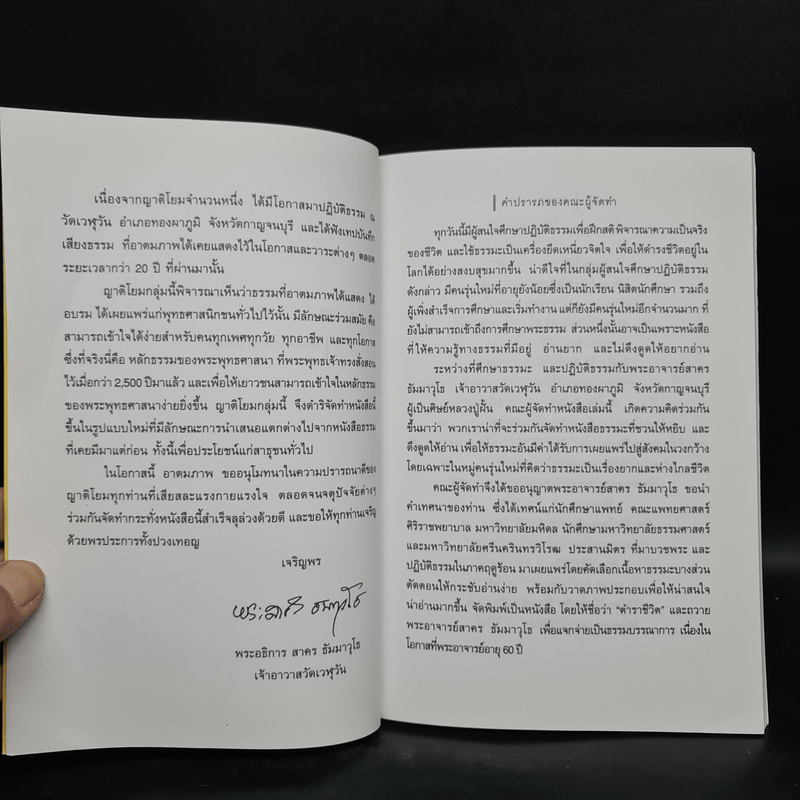 เนื่องจากญาติโยมจำนวนหนึ่ง ได้มีโอกาสมาปฏิบัติธรรม ณ
วัดเวฬุวัน อำเภอทองผาภูมิ จังหวัดกาญจนบุรี และได้ฟังเทปบันทึก
เสียงธรรม ที่อาตมภาพได้เคยแสดงไว้ในโอกาสและวาระต่างๆ ตลอด
ระยะเวลากว่า 20 ปี ที่ผ่านมานั้น
ญาติโยมกลุ่มนี้พิจารณาเห็นว่าธรรมที่อาตมภาพได้แสดง ได้
อบรม ได้เผยแพร่แก่พุทธศาสนิกชนทั่วไปไว้นั้น มีลักษณะร่วมสมัย คือ
สามารถเข้าใจได้ง่ายสำหรับคนทุกเพศทุกวัย ทุกอาชีพ และทุกโอกาส
ซึ่งที่จริงนี่คือ หลักธรรมของพระพุทธศาสนา ที่พระพุทธเจ้าทรงสั่งสอน
ไว้เมื่อกว่า 2,500 ปีมาแล้ว และเพื่อให้เยาวชนสามารถเข้าใจในหลักธรรม
ของพระพุทธศาสนาง่ายยิ่งขึ้น ญาติโยมกลุ่มนี้ จึงดำริจัดทำหนังสือนี้
ขึ้นในรูปแบบใหม่ที่มีลักษณะการนำเสนอแตกต่างไปจากหนังสือธรรม
ที่เคยมีมาแต่ก่อน ทั้งนี้เพื่อประโยชน์แก่สาธุชนทั่วไป
ในโอกาสนี้ อาตมภาพ ขออนุโมทนาในความปรารถนาดีของ
ญาติโยมทุกท่านที่เสียสละแรงกายแรงใจ ตลอดจนจตุปัจจัยต่างๆ
ร่วมกันจัดทำกระทั่งหนังสือนี้สำเร็จลุล่วงด้วยดี และขอให้ทุกท่านเจริญ
ด้วยพรประการทั้งปวงเทอญ
เจริญพร
พระอธิการ สาคร ธัมมาวุโธ
เจ้าอาวาสวัดเวฬุวัน
คำปรารภของคณะผู้จัดทำ
ทุกวันนี้มีผู้สนใจศึกษาปฏิบัติธรรมเพื่อฝึกสติ พิจารณาความเป็นจริง
ของชีวิต และใช้ธรรมะเป็นเครื่องยึดเหนี่ยวจิตใจ เพื่อให้ดำรงชีวิตอยู่ใน
โลกได้อย่างสงบสุขมากขึ้น น่าดีใจที่ในกลุ่มผู้สนใจศึกษาปฏิบัติธรรม
ดังกล่าว มีคนรุ่นใหม่ที่อายุยังน้อยซึ่งเป็นนักเรียน นิสิตนักศึกษา รวมถึง
ผู้เพิ่งสำเร็จการศึกษาและเริ่มทำงาน แต่ก็ยังมีคนรุ่นใหม่อีกจำนวนมาก ที่
ยังไม่สามารถเข้าถึงการศึกษาพระธรรม ส่วนหนึ่งนั้นอาจเป็นเพราะหนังสือ
ที่ให้ความรู้ทางธรรมที่มีอยู่ อ่านยาก และไม่ดึงดูดให้อยากอ่าน
ระหว่างที่ศึกษาธรรมะ และปฏิบัติธรรมกับพระอาจารย์สาคร
ธัมมาวุโธ เจ้าอาวาสวัดเวฬุวัน อำเภอทองผาภูมิ จังหวัดกาญจนบุรี
ผู้เป็นศิษย์หลวงปู่ฝั้น คณะผู้จัดทำหนังสือเล่มนี้ เกิดความคิดร่วมกัน
ขึ้นมาว่า พวกเราน่าที่จะร่วมกันจัดทำหนังสือธรรมะที่ชวนให้หยิบ และ
ดึงดูดให้อ่าน เพื่อให้ธรรมะอันมีค่าได้รับการเผยแพร่ไปสู่สังคมในวงกว้าง
โดยเฉพาะในหมู่คนรุ่นใหม่ที่คิดว่าธรรมะเป็นเรื่องยากและห่างไกลชีวิต
คณะผู้จัดทำจึงได้ขออนุญาตพระอาจารย์สาคร ธัมมาวุโธ ขอนำ
คำเทศนาของท่าน ซึ่งได้เทศน์แก่นักศึกษาแพทย์ คณะแพทยศาสตร์
ศิริราชพยาบาล มหาวิทยาลัยมหิดล นักศึกษามหาวิทยาลัยธรรมศาสตร์
และมหาวิทยาลัยศรีนครินทรวิโรฒ ประสานมิตร ที่มาบวชพระ และ
ปฏิบัติธรรมในภาคฤดูร้อน มาเผยแพร่โดยคัดเลือกเนื้อหาธรรมะบางส่วน
ตัดตอนให้กระชับอ่านง่าย พร้อมกับวาดภาพประกอบเพื่อให้น่าสนใจ
น่าอ่านมากขึ้น จัดพิมพ์เป็นหนังสือ โดยให้ชื่อว่า "ตำราชีวิต" และถวาย
พระอาจารย์สาคร ธัมมาวุโธ เพื่อแจกจ่ายเป็นธรรมบรรณาการ เนื่องใน
โอกาสที่พระอาจารย์อายุ 60 ปี